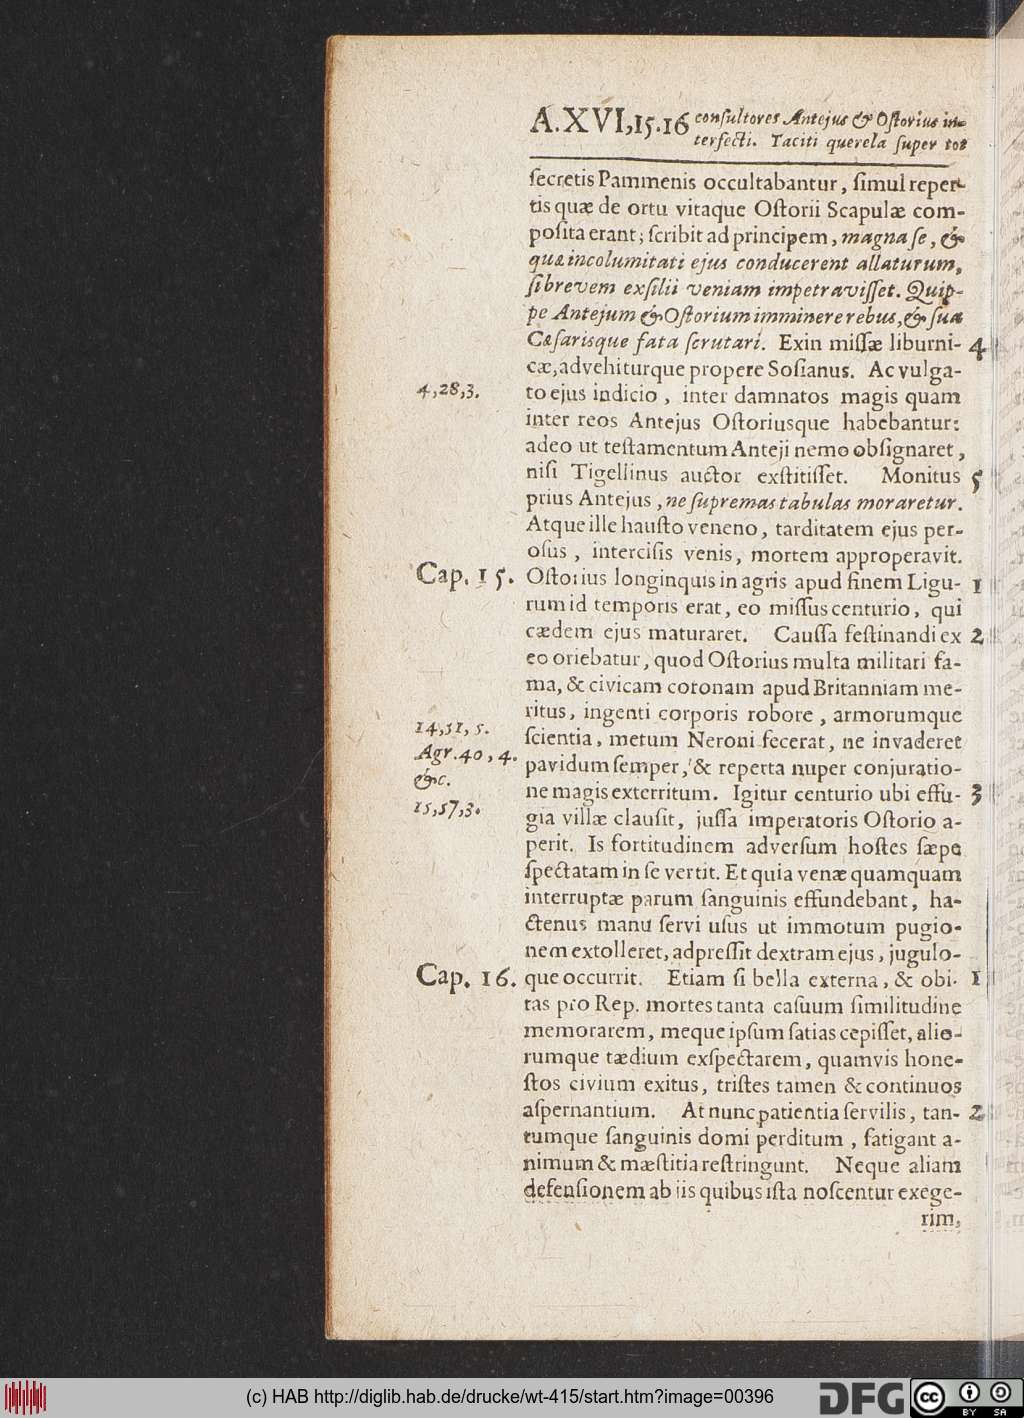 A.XVI,15.16 consultores Antejus & Ostorius in-
terfecti. Taciti querela super tot
secretis Pammenis occultabantur, simul reper-
tis quæ de ortu vitaque Ostorii Scapulæ com-
posita erant; scribit ad principem, magna se, &
quæ incolumitati ejus conducerent allaturum,
si brevem exsilii veniam impetravisset. Quip-
pe Antejum & Ostorium imminere rebus, & sua
Cæsarisque fata scrutari. Exin missæ liburni- 4
cæ, advehiturque propere Sosianus. Ac vulga-
4,28,3. to ejus indicio, inter damnatos magis quam
inter reos Antejus Ostoriusque habebantur:
adeo ut testamentum Anteji nemo obsignaret,
nisi Tigellinus auctor exstitisset. Monitus 5
prius Antejus, ne supremas tabulas moraretur.
Atque ille hausto veneno, tarditatem ejus per-
osus, intercisis venis, mortem approperavit.
Cap. 15. Ostorius longinquis in agris apud finem Ligu- 1
rum id temporis erat, eo missus centurio, qui
cædem ejus maturaret. Caussa festinandi ex 2
eo oriebatur, quod Ostorius multa militari fa-
ma, & civicam coronam apud Britanniam me-
ritus, ingenti corporis robore, armorumque
14,31,5. scientia, metum Neroni fecerat, ne invaderet
Agr. 40, 4. pavidum semper, & reperta nuper conjuratio-
&c. ne magis exterritum. Igitur centurio ubi effu- 3
15,57,3. gia villæ clausit, jussa imperatoris Ostorio a-
perit. Is fortitudinem adversum hostes sæpe
spectatam in se vertit. Et quia venæ quamquam
interruptæ parum sanguinis effundebant, ha-
ctenus manu servi usus ut immotum pugio-
nem extolleret, adpressit dextram ejus, jugulo-
Cap. 16. que occurrit. Etiam si bella externa, & obi- 1
tas pro Rep. mortes tanta casuum similitudine
memorarem, meque ipsum satias cepisset, alio-
rumque tædium exspectarem, quamvis hone-
stos civium exitus, tristes tamen & continuos
aspernantium. At nunc patientia servilis, tan- 2
tumque sanguinis domi perditum, fatigant a-
nimum & mæstitia restringunt. Neque aliam
defensionem ab iis quibus ista noscentur exege-
rim,
(c) HAB http://diglib.hab.de/drucke/wt-415/start.htm?image=00396
DFG
cc BY SA